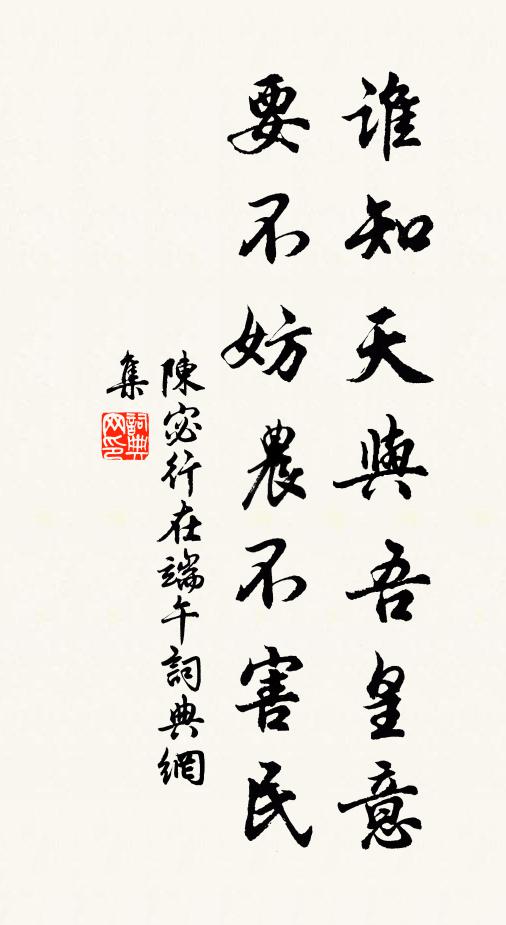 誰知天與吾皇意
要不妨農不害民
陳宓行在端午詞典網
集
詞典網印